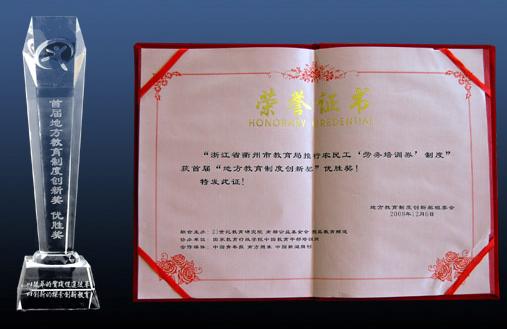 首届地方教育制度创新奖 优胜奖
荣誉证书
HONORARY CREDENTIAL
“浙江省衢州市教育局推行农民工‘劳务培训券’制度”
获首届“地方教育制度创新奖”优胜奖！
特发此证！
地方教育制度创新奖组委会
2008年12月6日
联合主办：21世纪教育研究院
协办单位：国家教育行政学院中国教育干部培训网
合作媒体：中国青年报 南方周末 中国新闻周刊